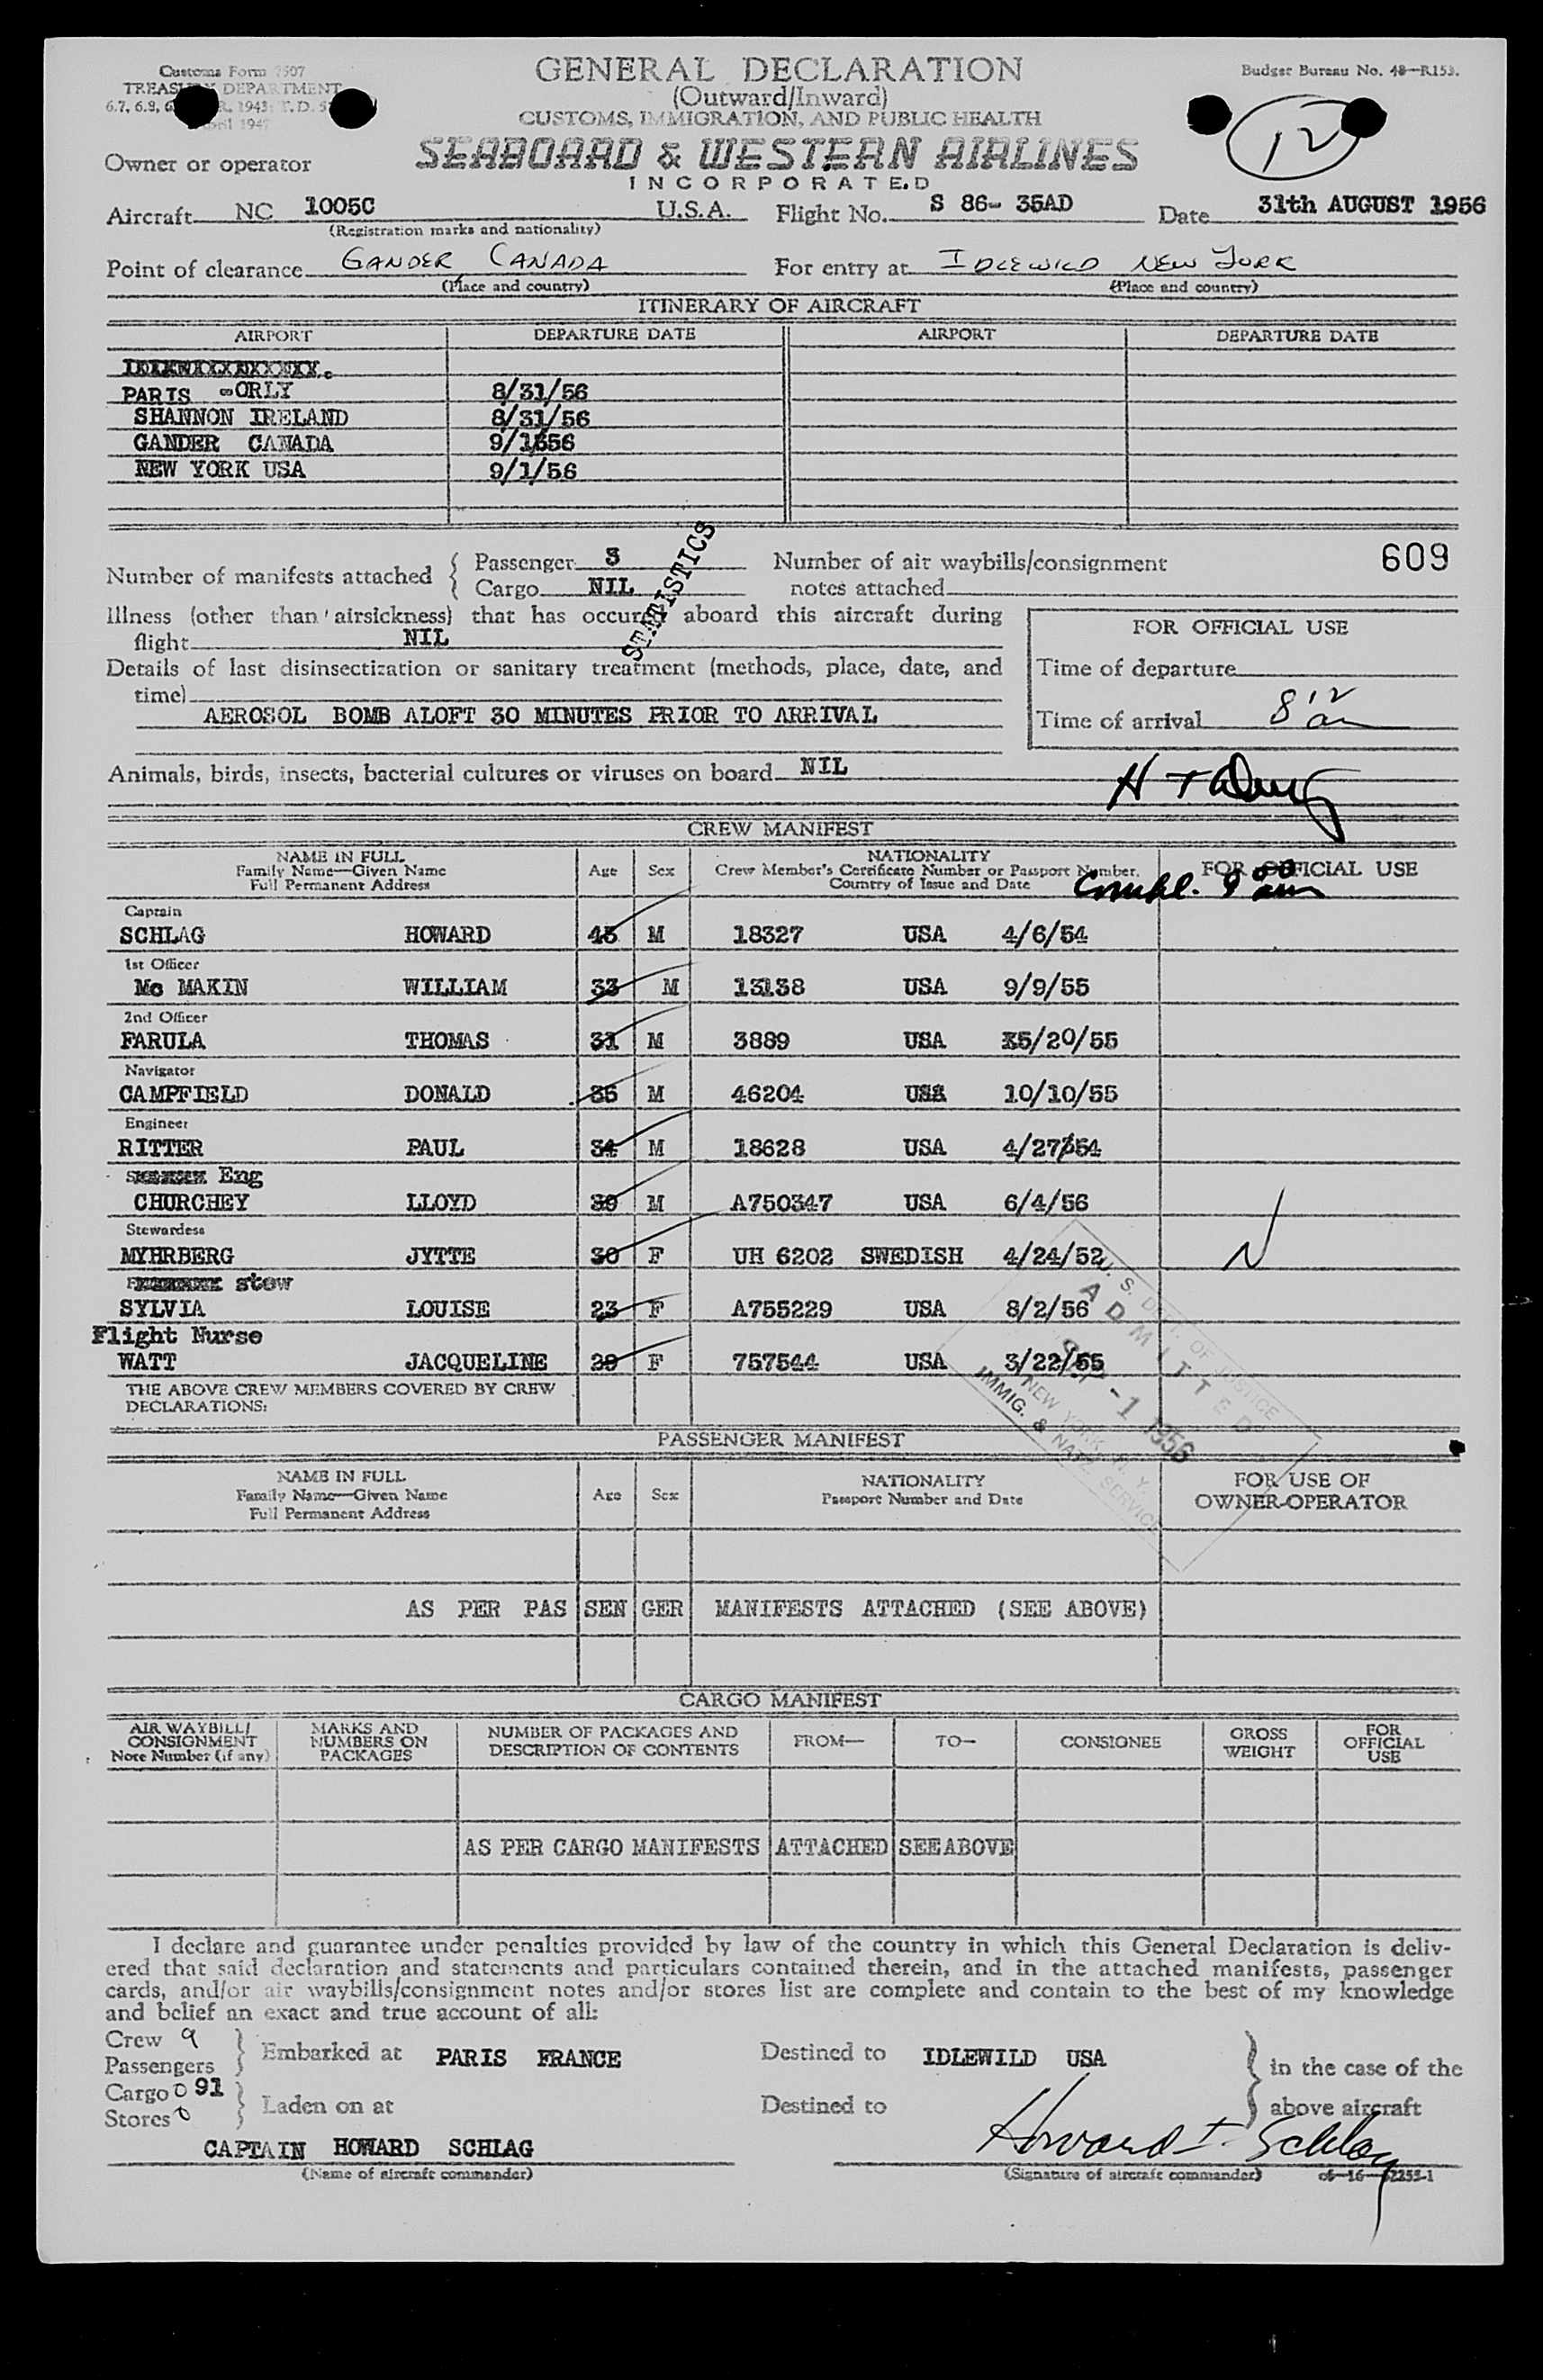 Customs Form 7507
GENERAL DECLARATION
Budget Bureau No. 48—R153.
TREASURY DEPARTMENT
(Outward/Inward)
6.7, 6.8, 1943; T.D.
CUSTOMS, IMMIGRATION, AND PUBLIC HEALTH
12
1947
Owner or operator
SEABOARD & WESTERN AIRLINES
INCORPORATED
Aircraft NC 1005C U.S.A. Flight No. S 86- 35AD Date 31th AUGUST 1956
(Registration marks and nationality)
Point of clearance GANDER, CANADA For entry at IDLEWILD NEW YORK
(Place and country) (Place and country)
ITINERARY OF AIRCRAFT
AIRPORT DEPARTURE DATE AIRPORT DEPARTURE DATE
PARIS -ORLY 8/31/56
SHANNON IRELAND 8/31/56
GANDER CANADA 9/1/56
NEW YORK USA 9/1/56
STATISTICS
Number of manifests attached { Passenger 3 Number of air waybills/consignment 609
Cargo NIL notes attached
Illness (other than airsickness) that has occurred aboard this aircraft during
flight NIL
FOR OFFICIAL USE
Details of last disinsectization or sanitary treatment (methods, place, date, and
time)
Time of departure
AEROSOL BOMB ALOFT 30 MINUTES PRIOR TO ARRIVAL
Time of arrival 8 12 am
Animals, birds, insects, bacterial cultures or viruses on board NIL
CREW MANIFEST
NAME IN FULL Age Sex NATIONALITY FOR OFFICIAL USE
Family Name—Given Name Crew Member's Certificate Number or Passport Number.
Full Permanent Address Country of Issue and Date
Compl. 9 00 am
Captain
SCHLAG HOWARD 45 M 18327 USA 4/6/54
1st Officer
Mc MAKIN WILLIAM 33 M 13138 USA 9/9/55
2nd Officer
FARULA THOMAS 31 M 3889 USA 5/20/55
Navigator
CAMPFIELD DONALD 35 M 46204 USA 10/10/55
Engineer
RITTER PAUL 34 M 18628 USA 4/27/54
Eng
CHURCHEY LLOYD 39 M A750347 USA 6/4/56
Stewardess
MYHRBERG JYTTE 30 F UH 6202 SWEDISH 4/24/52
stew
SYLVIA LOUISE 23 F A755229 USA 8/2/56
Flight Nurse
WATT JACQUELINE 29 F 757544 USA 3/22/55
THE ABOVE CREW MEMBERS COVERED BY CREW
DECLARATIONS:
U. S. DEPT. OF JUSTICE
ADMITTED
SEP -1 1956
NEW YORK, N. Y.
IMMIG. & NATZ. SERVICE
PASSENGER MANIFEST
NAME IN FULL Age Sex NATIONALITY FOR USE OF
Family Name—Given Name Passport Number and Date OWNER-OPERATOR
Full Permanent Address
AS PER PAS SEN GER MANIFESTS ATTACHED (SEE ABOVE)
CARGO MANIFEST
AIR WAYBILL/ MARKS AND NUMBER OF PACKAGES AND FROM— TO— CONSIGNEE GROSS FOR
CONSIGNMENT NUMBERS ON DESCRIPTION OF CONTENTS WEIGHT OFFICIAL
Note Number (if any) PACKAGES USE
AS PER CARGO MANIFESTS ATTACHED SEE ABOVE
I declare and guarantee under penalties provided by law of the country in which this General Declaration is deliv-
ered that said declaration and statements and particulars contained therein, and in the attached manifests, passenger
cards, and/or air waybills/consignment notes and/or stores list are complete and contain to the best of my knowledge
and belief an exact and true account of all:
Crew 9
Passengers } Embarked at PARIS FRANCE Destined to IDLEWILD USA } in the case of the
Cargo 0 91
Stores 0 } Laden on at Destined to above aircraft
CAPTAIN HOWARD SCHLAG Howard I. Schlag
(Name of aircraft commander) (Signature of aircraft commander)